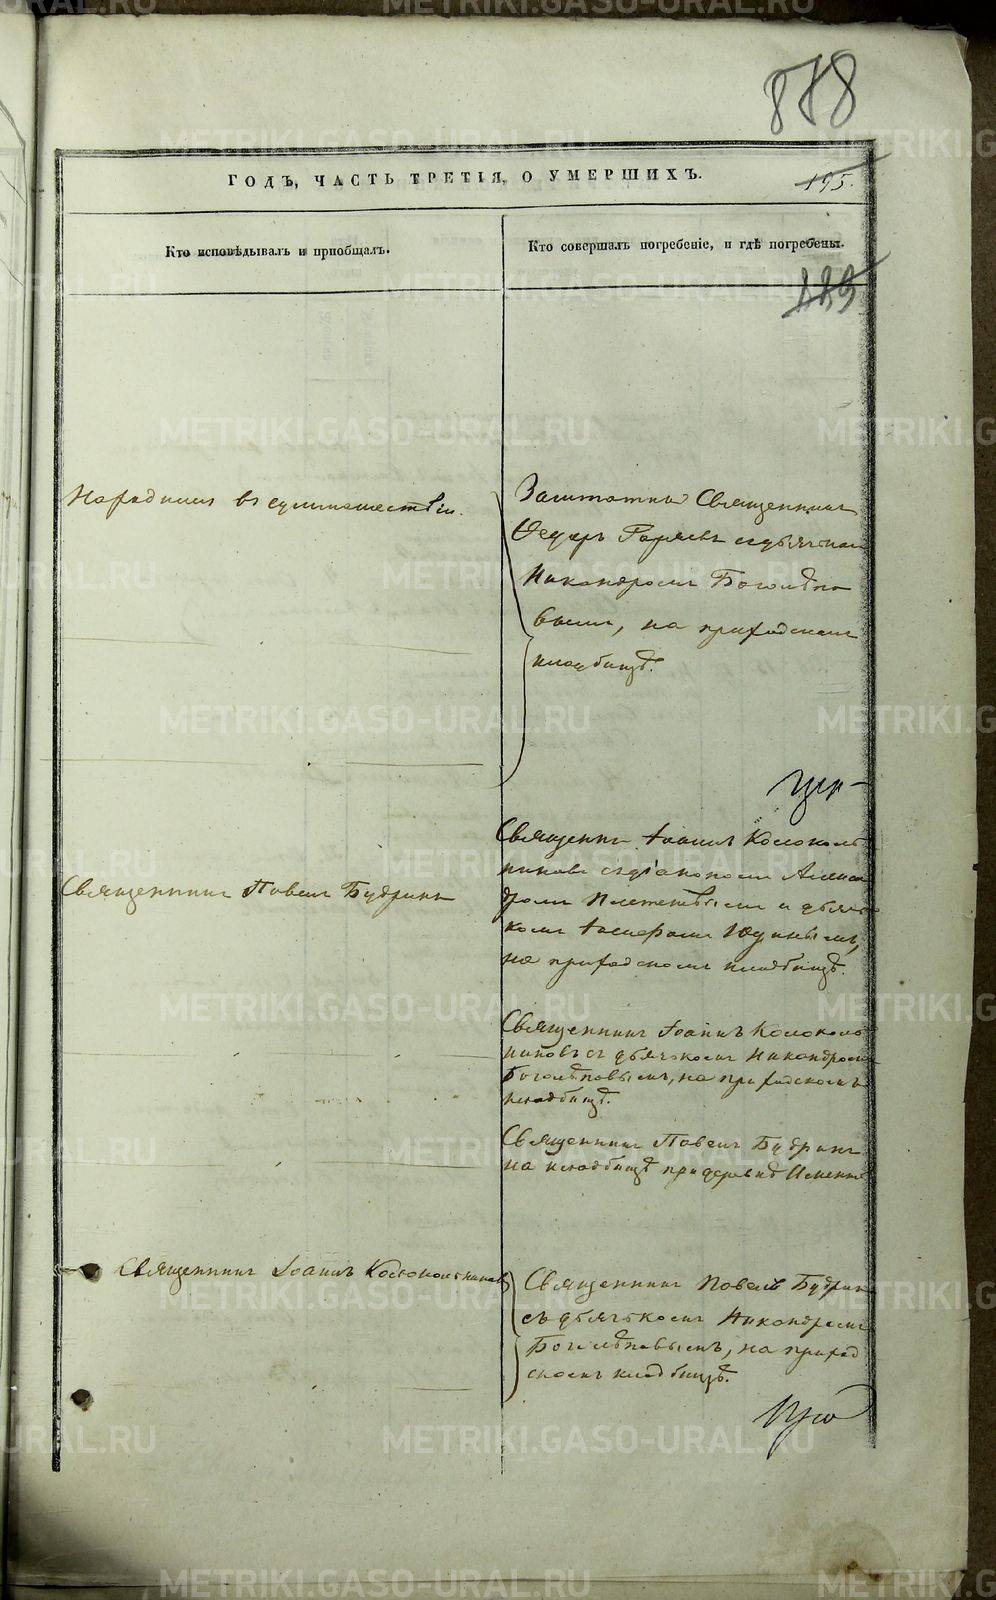 878
ГОДЪ, ЧАСТЬ ТРЕТІЯ, О УМЕРШИХЪ.
195.
Кто исповѣдывалъ и пріобщалъ.
Кто совершалъ погребеніе, и гдѣ погребены.
въ сумашествіи.
Заштатный Священникъ
Ѳедоръ
Никандромъ Боголѣпо
вымъ, на приходскомъ
кладбищѣ.
Священникъ Павелъ Будринъ
Священникъ Іоаннъ Колоколь
никовъ съ діакономъ Алексан
дромъ и дьяч
комъ Іосифомъ Юдинымъ,
на приходскомъ кладбищѣ.
Священникъ Іоаннъ Колоколь
никовъ съ дьячкомъ Никандромъ
Боголѣповымъ, на приходскомъ
кладбищѣ.
Священникъ Павелъ Будринъ
на кладбищѣ при деревнѣ
Священникъ Іоаннъ Колокольниковъ
Священникъ Павелъ Будринъ
съ дьячкомъ Никандромъ
Боголѣповымъ, на приход
скомъ кладбищѣ.
METRIKI.GASO-URAL.RU